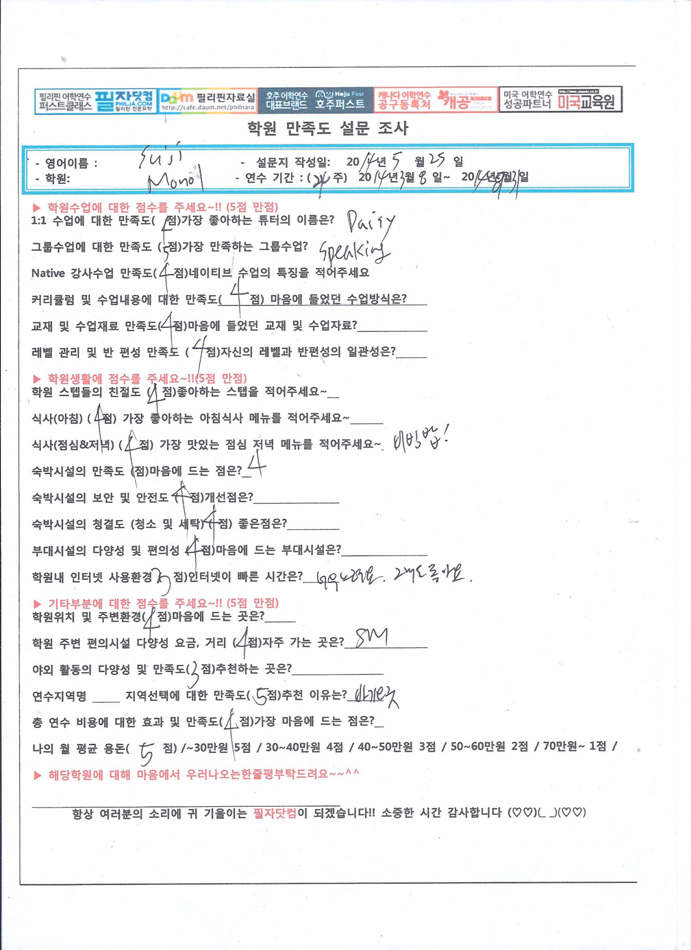 필리핀 어학연수 퍼스트클래스 필자닷컴 PHILJA.COM 필리핀 전문유학 Daum 필리핀자료실 http://cafe.daum.net/philnara 호주 어학연수 대표브랜드 Hoju First 호주퍼스트 캐나다 어학연수 공구등록처 개공 미국 어학연수 성공파트너 미국교육원
학원 만족도 설문 조사
- 영어이름 : Suji - 설문지 작성일: 2014년 5 월 25 일
- 학원: Monol - 연수 기간 : (24 주) 2014년 3월 8 일~ 2014년 8월 31일
▶ 학원수업에 대한 점수를 주세요~!! (5점 만점)
1:1 수업에 대한 만족도( 점)가장 좋아하는 튜터의 이름은? Daisy
그룹수업에 대한 만족도 (5점)가장 만족하는 그룹수업? Speaking
Native 강사수업 만족도(4점)네이티브 수업의 특징을 적어주세요
커리큘럼 및 수업내용에 대한 만족도 ( 4 점) 마음에 들었던 수업방식은?
교재 및 수업재료 만족도(4점)마음에 들었던 교재 및 수업자료?
레벨 관리 및 반 편성 만족도 ( 4점)자신의 레벨과 반편성의 일관성은?
▶ 학원생활에 점수를 주세요~!!(5점 만점)
학원 스텝들의 친절도 (4점)좋아하는 스탭을 적어주세요~
식사(아침) (4점) 가장 좋아하는 아침식사 메뉴를 적어주세요~
식사(점심&저녁) (4점) 가장 맛있는 점심 저녁 메뉴를 적어주세요~ 비빔밥!
숙박시설의 만족도 (점)마음에 드는 점은? 4
숙박시설의 보안 및 안전도 (4점)개선점은?
숙박시설의 청결도 (청소 및 세탁)(4점) 좋은점은?
부대시설의 다양성 및 편의성 (4점)마음에 드는 부대시설은?
학원내 인터넷 사용환경(3 점)인터넷이 빠른 시간은? 너무 느려요.
▶ 기타부분에 대한 점수를 주세요~!! (5점 만점)
학원위치 및 주변환경(4점)마음에 드는 곳은?
학원 주변 편의시설 다양성 요금, 거리 (4점)자주 가는 곳은? SM
야외 활동의 다양성 및 만족도(3점)추천하는 곳은?
연수지역명 지역선택에 대한 만족도(5점)추천 이유는?
총 연수 비용에 대한 효과 및 만족도(4점)가장 마음에 드는 점은?
나의 월 평균 용돈( 5 점) /~30만원 5점 / 30~40만원 4점 / 40~50만원 3점 / 50~60만원 2점 / 70만원~ 1점 /
▶ 해당학원에 대해 마음에서 우러나오는한줄평부탁드려요~~^^
항상 여러분의 소리에 귀 기울이는 필자닷컴이 되겠습니다!! 소중한 시간 감사합니다 (♡♡)(_ _)(♡♡)